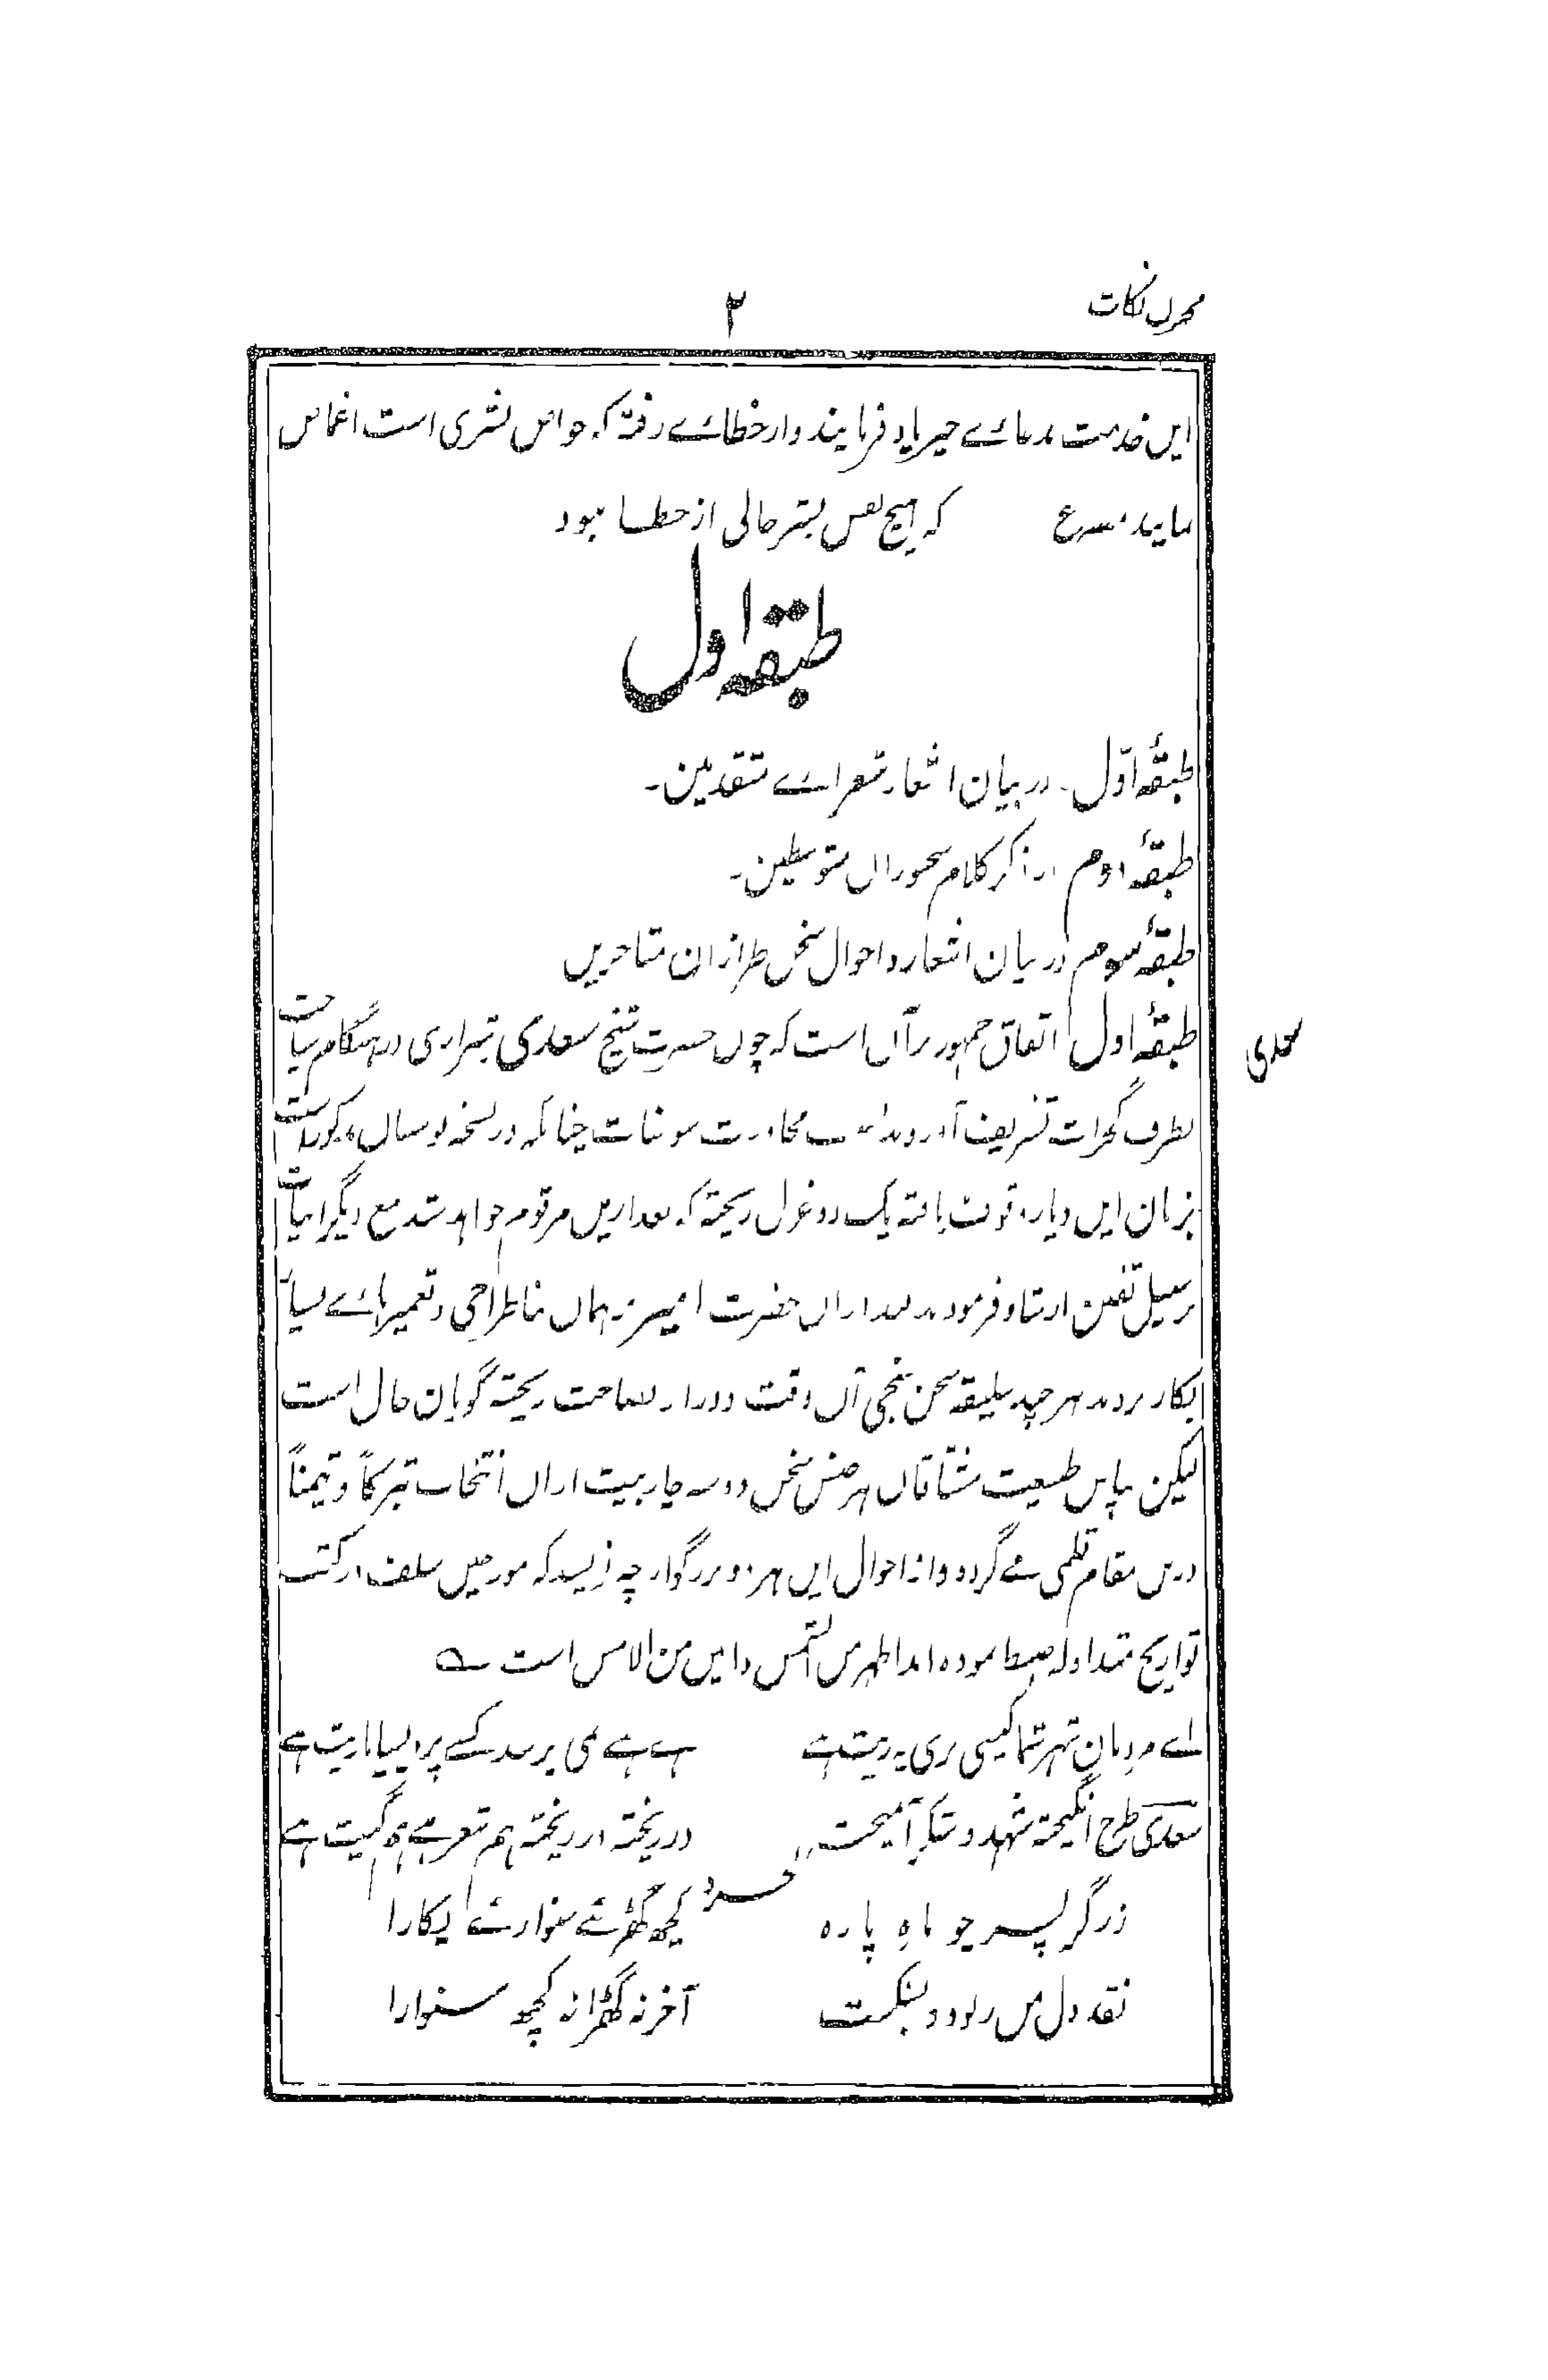 مخزن نکات
۲
این خدمت بدعائے خیر یاد فرمایند و از خطائے رفتہ کہ خواص بشری است اغماض
نمایند مصرع کہ ہیچ نفس بشر خالی از خطا نبود
طبقہ اول
طبقۂ اوّل۔ در بیان اشعار شعرائے متقدمین۔
طبقۂ دوم در ذکر کلام سخنوران متوسطین۔
طبقۂ سوم در بیان اشعار و احوال سخن طرازان متاخرین
سعدی
طبقۂ اول اتفاق جمہور بر آن است کہ چوں حضرت شیخ سعدی شیرازی در ہنگام سیاحت
بطرف گجرات تشریف آوردند مجاورت سومنات چنانکہ در نسخہ بوستاں مذکور است
بزبان ایں دیار وقوف یافتہ یک دو غزل ریختہ کہ بعد ازیں مرقوم خواہد شد مع دیگر ابیات
بر سبیل تفنن ارشاد فرمودند بعد ازاں حضرت امیر بر ہماں بنا طراحی و تعمیر ہائے بسیار
بکار بردند ہر چند سلیقہ سخن سنجی آں وقت دور از فصاحت ریختہ گویان حال است
لیکن بپاس طبیعت مشتاقاں ہر جنس سخن دو سہ چار بیت ازاں انتخاب تبرکاً و تیمناً
دریں مقام قلمی مے گردد و از احوال ایں ہر دو بزرگوار چہ نویسد کہ مورخین سلف در کتب
تواریخ متداولہ ضبط نمودہ اند اظہر من الشمس و ابین من الامس است ؎
اے مردمان شہر شما کیسی بری یہ ریت ہے ہے ہے نمی پرسد کسے پردیسیا ماریت ہے
سعدی طرح انگیختہ شہد و شکر آمیخت در ریختہ در ریختہ ہم شعر ہے ہم گیت ہے
خسرو
زرگر پسرے چو ماہ پارہ کچھ گھڑئے سنوارئے پکارا
نقد دل من ربود و بشکست آخر نہ گھڑا نہ کچھ سنوارا